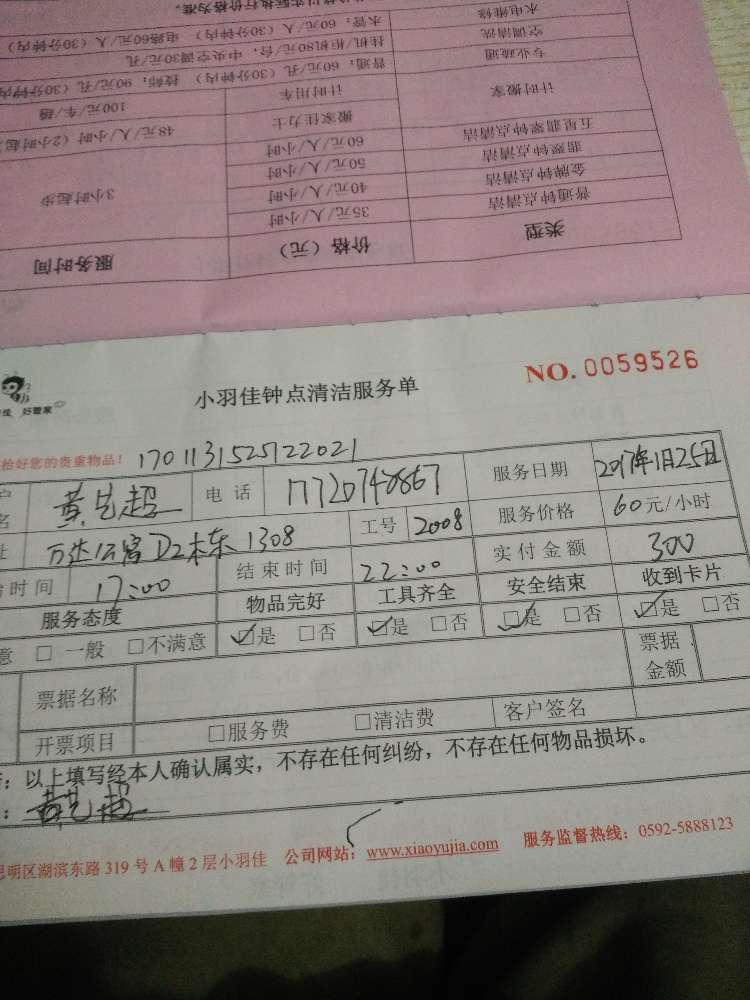 类型 价格（元） 服务时间
普通钟点清洁 35元/人/小时 3小时起步
金牌钟点清洁 40元/人/小时
翡翠钟点清洁 50元/人/小时
五星翡翠钟点清洁 60元/人/小时
计时搬家 搬家佳力士 48元/人/小时（2小时起
计时用车 100元/车/趟
专业疏通 普通：60元/孔（30分钟内） 90元/孔（30分钟内
空调清洗 挂机/柜机80元/台，中央空调30元/孔
水电维修 水管：60元/人（30分钟内） 电路60元/人（30分钟内）
实际执行价格为准。
小羽佳钟点清洁服务单 NO. 0059526
佳 好管家
拾好您的贵重物品！ 1701131525122021
户名 黄 超 电话 17720748667 服务日期 2017年1月25日
址 万达公寓D2 1308 工号 2008 服务价格 60元/小时
始时间 17:00 结束时间 22:00 实付金额 300
服务态度 物品完好 工具齐全 安全结束 收到卡片
意 □ 一般 □不满意 ☑是 □否 ☑是 □否 ☑是 □否 ☑是 □否
票据名称 票据金额
开票项目 □服务费 □清洁费 客户签名
：以上填写经本人确认属实，不存在任何纠纷，不存在任何物品损坏。
：黄 超
思明区湖滨东路 319 号 A 幢 2 层小羽佳 公司网站：www.xiaoyujia.com 服务监督热线：0592-5888123